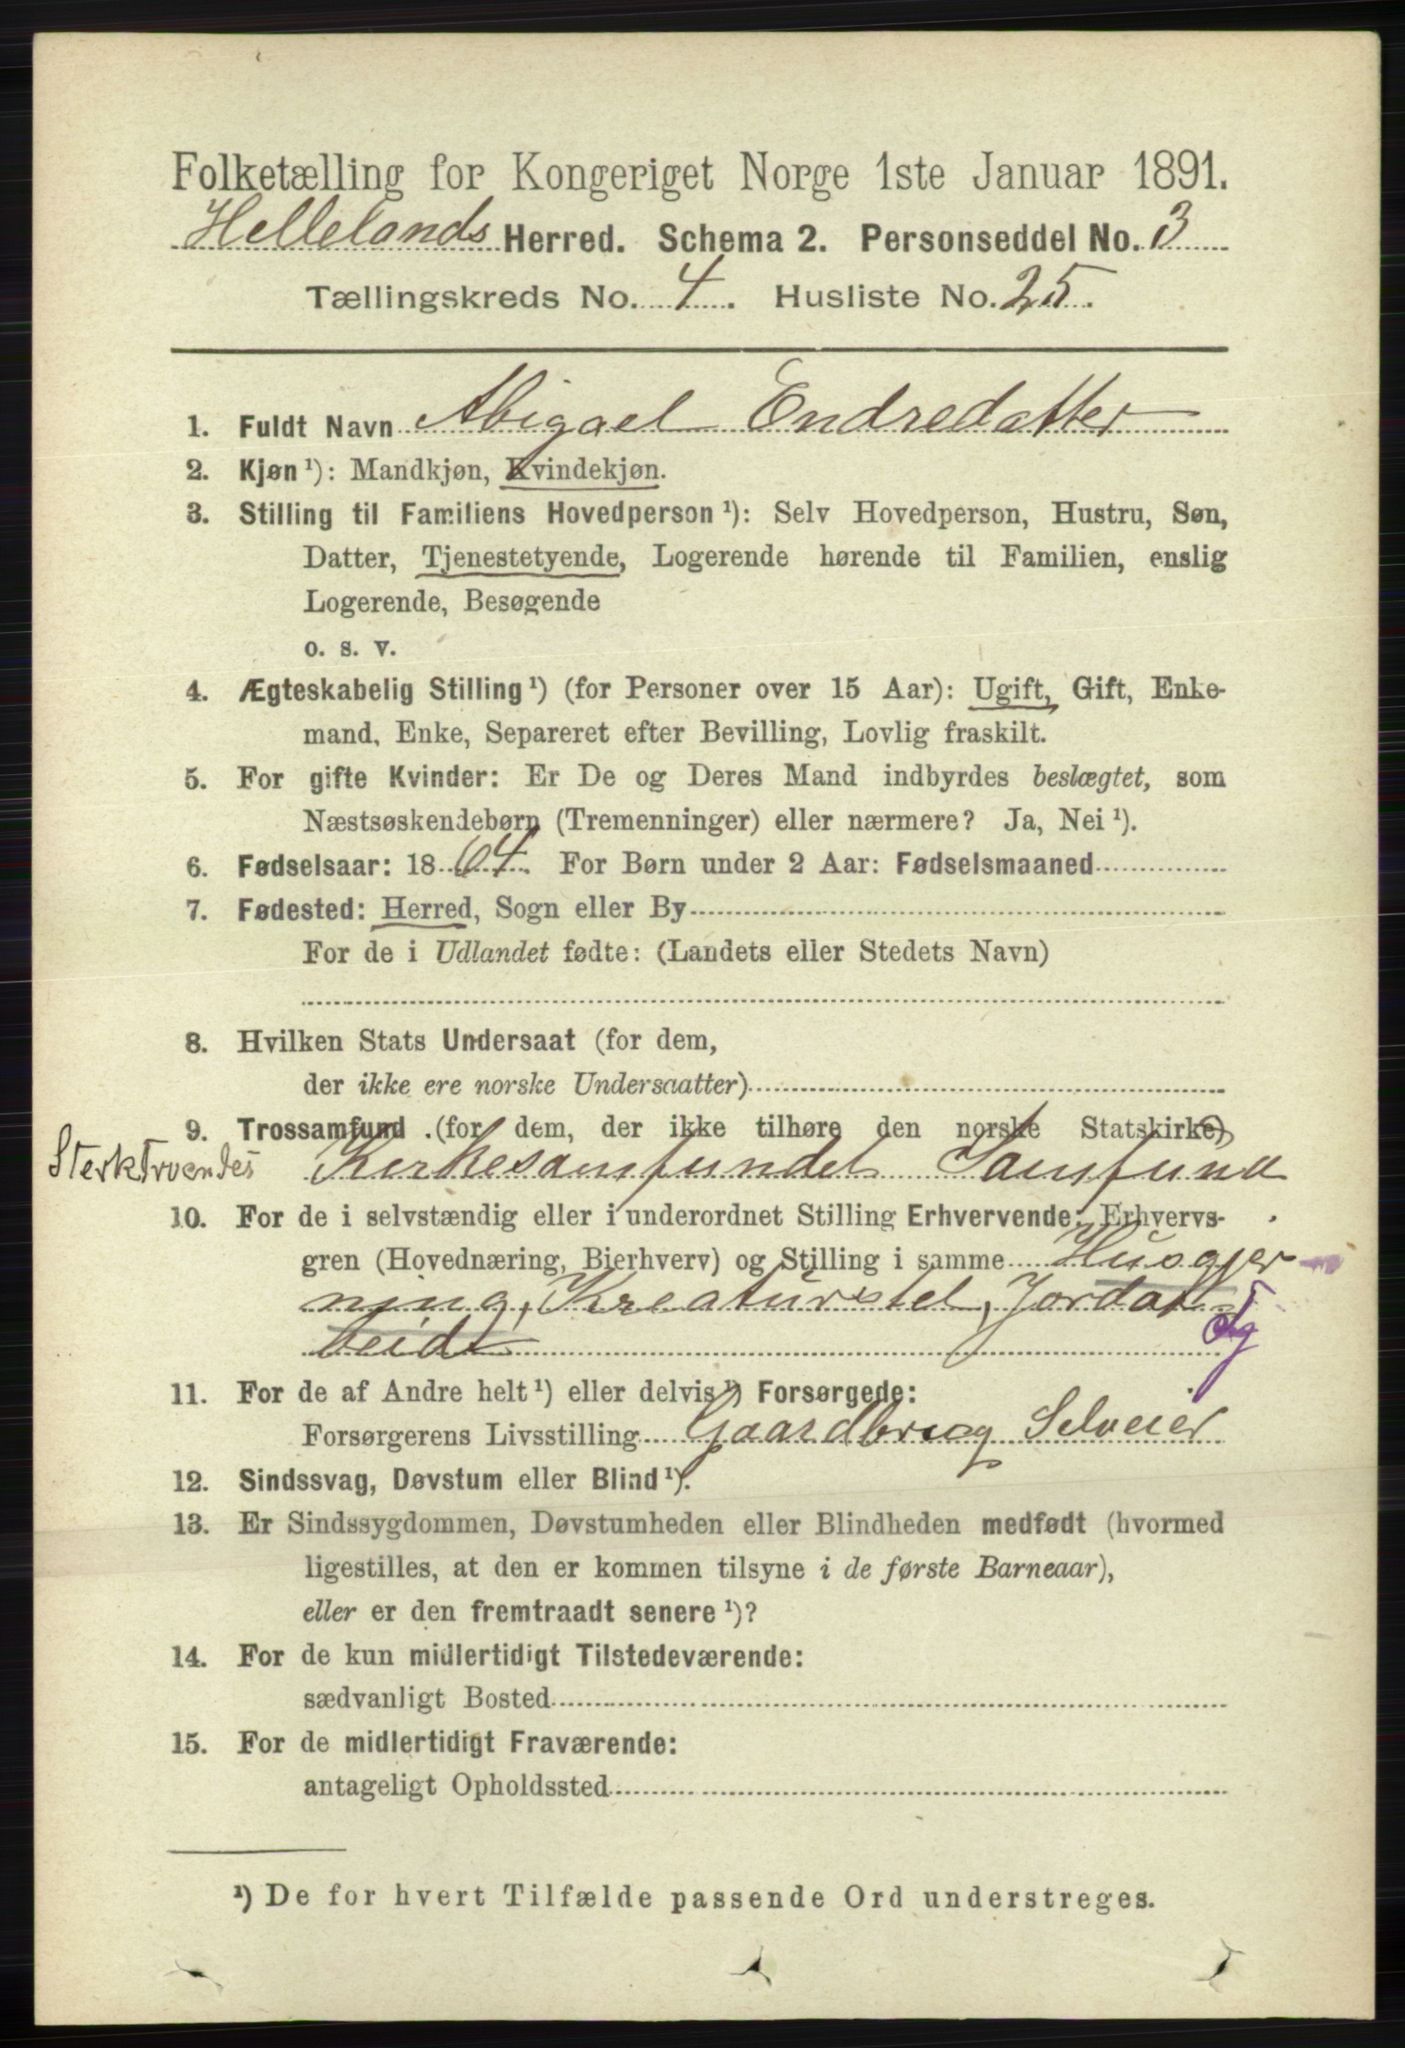 Folketælling for Kongeriget Norge 1ste Januar 1891.
Hellelands Herred. Schema 2. Personseddel No. 3
Tællingskreds No. 4. Husliste No. 25.
1. Fuldt Navn Abigael Endredatter
2. Kjøn ¹): Mandkjøn, Kvindekjøn.
3. Stilling til Familiens Hovedperson ¹): Selv Hovedperson, Hustru, Søn,
Datter, Tjenestetyende, Logerende hørende til Familien, enslig
Logerende, Besøgende
o. s. v.
4. Ægteskabelig Stilling ¹) (for Personer over 15 Aar): Ugift, Gift, Enke-
mand, Enke, Separeret efter Bevilling, Lovlig fraskilt.
5. For gifte Kvinder: Er De og Deres Mand indbyrdes beslægtet, som
Næstsøskendebørn (Tremenninger) eller nærmere? Ja, Nei ¹).
6. Fødselsaar: 1864. For Børn under 2 Aar: Fødselsmaaned
7. Fødested: Herred, Sogn eller By
For de i Udlandet fødte: (Landets eller Stedets Navn)
8. Hvilken Stats Undersaat (for dem,
der ikke ere norske Undersaatter)
9. Trossamfund . (for dem, der ikke tilhøre den norske Statskirke)
Sterktroendes Kirkesamfundet Samfund
10. For de i selvstændig eller i underordnet Stilling Erhvervende: Erhvervs-
gren (Hovednæring, Bierhverv) og Stilling i samme Husgjer
ning, Kreaturstel, Jordar-
beide
11. For de af Andre helt ¹) eller delvis ¹) Forsørgede:
Forsørgerens Livsstilling Gaardbrug Selveier
12. Sindssvag, Døvstum eller Blind ¹).
13. Er Sindssygdommen, Døvstumheden eller Blindheden medfødt (hvormed
ligestilles, at den er kommen tilsyne i de første Barneaar),
eller er den fremtraadt senere ¹)?
14. For de kun midlertidigt Tilstedeværende:
sædvanligt Bosted
15. For de midlertidigt Fraværende:
antageligt Opholdssted
¹) De for hvert Tilfælde passende Ord understreges.